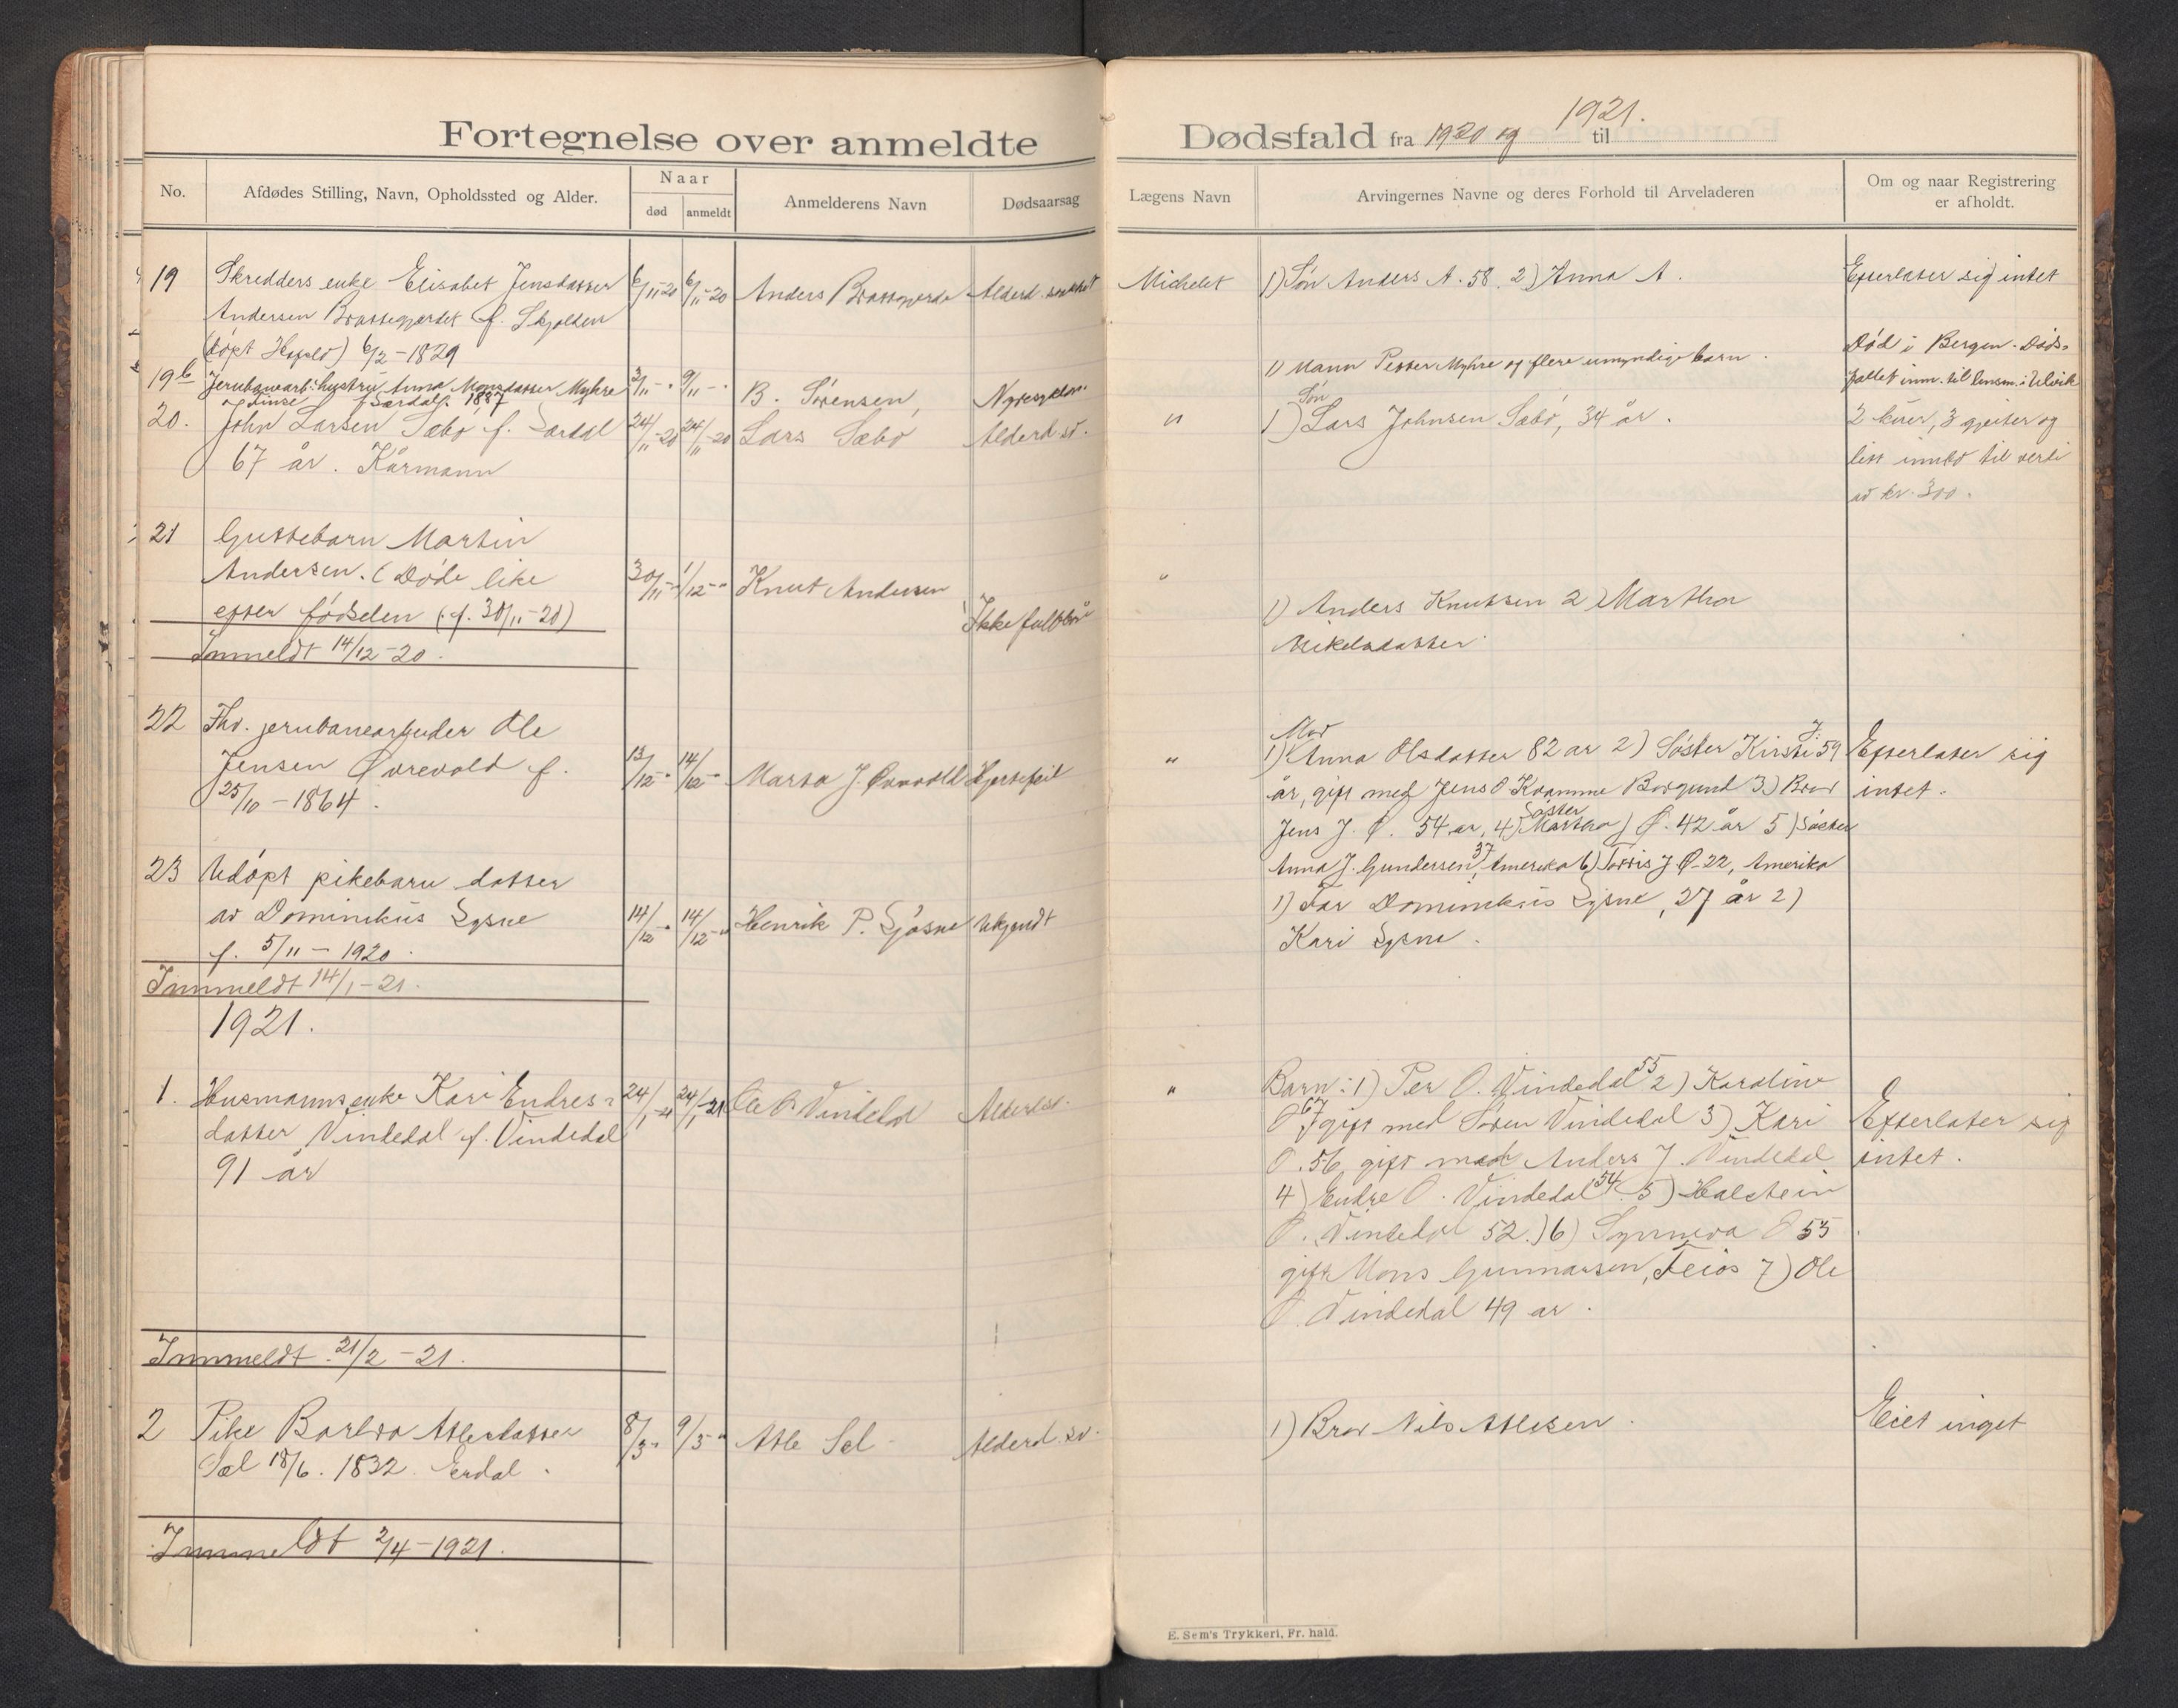 Fortegnelse over anmeldte
Dødsfald fra 1920 og til 1921.
No.
Afdødes Stilling, Navn, Opholdssted og Alder.
Naar
død
anmeldt
Anmelderens Navn
Dødsaarsag
Lægens Navn
Arvingernes Navne og deres Forhold til Arveladeren
Om og naar Registrering
er afholdt.
19 Skredders enke Elisabet Jensdatter 6/11-20 6/11-20 Anders Alderd. Michelet 1) Søn Anders A. 58. 2) Anna A. Efterlater sig intet
Andersen f. Skjolden
(døpt Hafslo) 6/2-1829
19b Jernbanearb. hustru Anna Monsdatter Myhre 3/11-" 9/11-" B. Sørensen, 1) Mann Petter Myhre og flere umyndige barn. Død i Bergen. Døds-
Finse 1887 fallet inm. til lensm. i Ulvik
20. John Larsen Sæbø f. 24/11-20 24/11-20 Lars Sæbø Alderd.sv. " 1) Søn Lars Johnsen Sæbø, 34 år. 2 kuer, 3 gjeiter og
67 år. Kårmann
litt innbo til verdi
av kr. 300.
21 Guttebarn Martin
Andersen. (Døde like 30/11-" 1/12-" Knut Andersen "
efter fødselen (f. 30/11-20) Ikke fullbår 1) Anders Knutsen 2) Martha
Mikelsdatter
Innmeldt 14/12-20.
22 Fhv. jernbanearbeider Ole
Jensen Øvrevold f. 13/12-" 14/12-" Marta J. Øvrevold Hjertefeil " 1) Mor Anna Olsdatter 82 år 2) Søster Kirsti J. 59 Efterlater sig
25/10-1864.
år, gift med Jens O Kvamme Borgund 3) Bror intet.
Jens J. Ø. 54 år, 4) Søster Martha J Ø. 42 år 5) Søster
Anna J. Gundersen, 37 Amerika 6) J. Ø. 22, Amerika
23 Udøpt pikebarn datter
av Dominikus Lysne 14/12-" 14/12-" Henrik P. Ljøsne Ukjendt 1) Far Dominikus Lysne, 27 år 2)
f. 5/11-1920. Kari Lysne.
Innmeldt 14/1-21.
1921.
1. Husmannsenke Kari Endres- 24/1-21 24/1-21 Ole O Vindedal " Barn: 1) Per O. Vindedal 55 2) Karoline
datter Vindedal f. Vindedal O 67 gift med Søren Vindedal 3) Kari Efterlater sig
91 år O. 56, gift med Anders J. Vindedal intet.
4) Endre O. Vindedal 54. 5) Halstein
O. Vindedal 52.) 6) Synneva O 55
gift Mons Gunnarsen, Feios 7) Ole
O. Vindedal 49 år.
Innmeldt 21/2-21.
2 Pike Barbro Atlesdatter 8/3-" 9/3-" Atle Sel Alderd.sv. 1) Bror Nils Atlesen. Eiet inget
Sæl 18/6. 1832. Erdal.
Innmeldt 2/4-1921.
E. Sem's Trykkeri, Fr.hald.